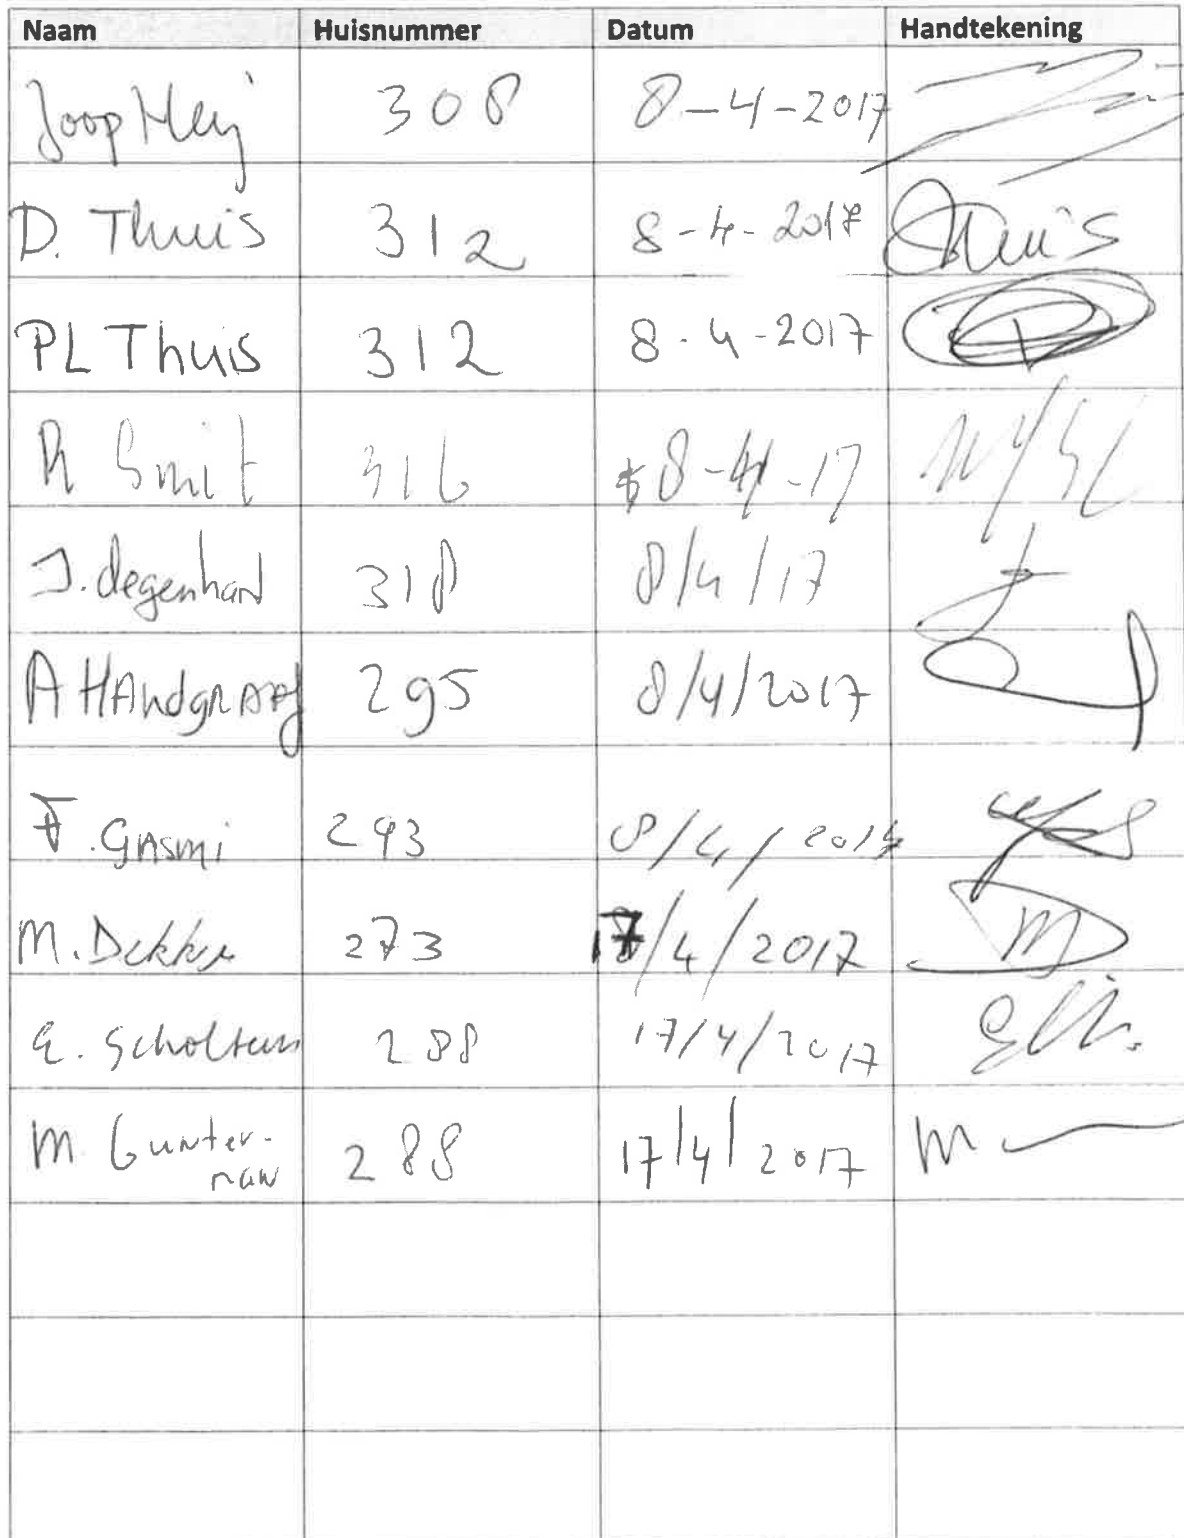 Naam Huisnummer Datum Handtekening
Joop Meij 308 8-4-2017
D. Thuis 312 8-4-2017 Thuis
PL Thuis 312 8-4-2017
R Smit 316 8-4-17
J. degenhard 318 8/4/17
A HAndgrAAf 295 8/4/2017
F. GASmi 293 8/4/2017
M. Dekker 273 17/4/2017 M
E. Scholtens 288 17/4/2017
M. Gunter- 288 17/4/2017 M
naw